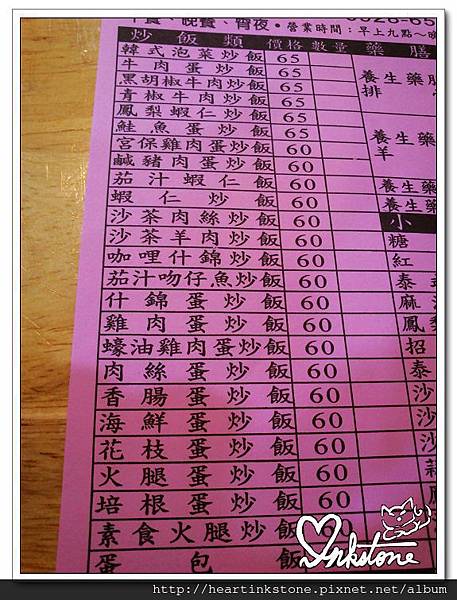 午餐•晚餐•宵夜•營業時間：早上九點～晚
炒飯類 價格 數量 藥膳
韓式泡菜炒飯 65
牛肉蛋炒飯 65 養生藥膳
黑胡椒牛肉炒飯 65 排
青椒牛肉炒飯 65
鳳梨蝦仁炒飯 65
鮭魚蛋炒飯 65 養生藥
宮保雞肉蛋炒飯 60 羊
鹹豬肉蛋炒飯 60
茄汁蝦仁飯 60 養生藥
蝦仁炒飯 60 養生藥
沙茶肉絲炒飯 60 小
沙茶羊肉炒飯 60 糖
咖哩什錦炒飯 60 紅
茄汁吻仔魚炒飯 60 泰
什錦蛋炒飯 60 麻
雞肉蛋炒飯 60 鳳
蠔油雞肉蛋炒飯 60 招
肉絲蛋炒飯 60 泰
香腸蛋炒飯 60 沙
海鮮蛋炒飯 60 沙
花枝蛋炒飯 60 沙
火腿蛋炒飯 60
培根蛋炒飯 60
素食火腿炒飯
蛋包飯
Inkstone
http://heartinkstone.pixnet.net/album